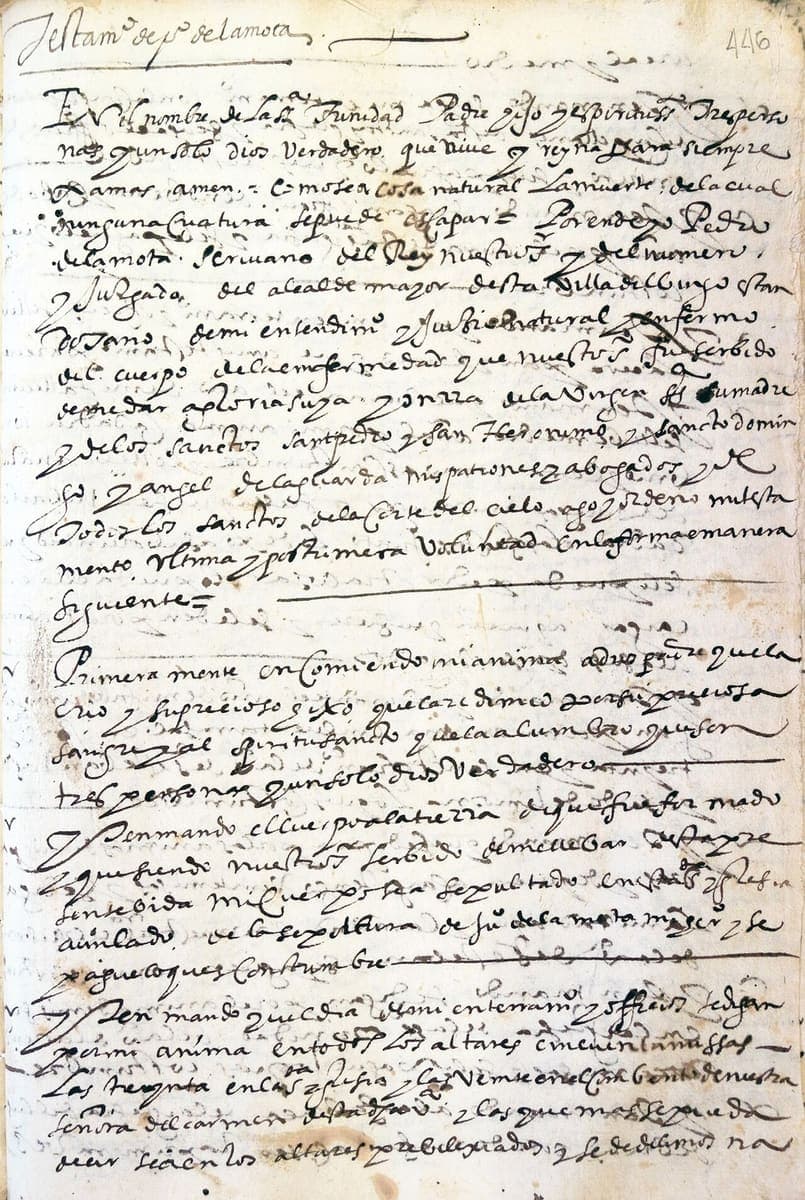 Testamº de pº de la mota
446
En el nombre de la Stª Trinidad Padre yijo yespiritu sº Tres perso
nas yun solo dios verdadero que vive y reyna para siempre
xamas amen = Como sea cosa natural La muerte de la cual
ninguna Criatura se puede escapar = Por ende yo Pedro
de la mota scrivano del Rey nuestro sr y del numero
y Juzgado del alcalde mayor desta villa del
do sano de mi entendimº y Juicio natural y enfermo
del cuerpo de la enfermedad que nuestro sr fue serbido
de me dar a gloria suya y onrra de la Virgen su madre
y de los sanctos sant pedro y san Heronimo y sancto domin
go y angel de la guarda mis patrones y abogados y de
todos los sanctos de la Corte del cielo ago y ordeno mi testa
mento ultima y postrimera voluntad en la forma e manera
siguiente =
Primera mente encomiendo mi anima a dios padre que la
crio y su precioso yixo que la redimio por su preciosa
sangre y al spiritu sancto que la alumbro que son
tres personas yun solo dios verdadero
yten mando el cuerpo a la tierra de que fue formado
y que siendo nuestro sr serbido de me llebar desta pre
sente bida mi cuerpo sea sepultado en yglesia
a un lado de la sepoltura de juº de la mota y se
pague lo que es Constumbre
yten mando que el dia de mi enterramº y officios se digan
por mi anima en todos los altares cincuenta missas
Las treynta en la sta yglesia y las veinte en el Combento de nuestra
señora del carmen desta y las que mas se pueda
decir sea en los altares prebilexiados y se de de limosna